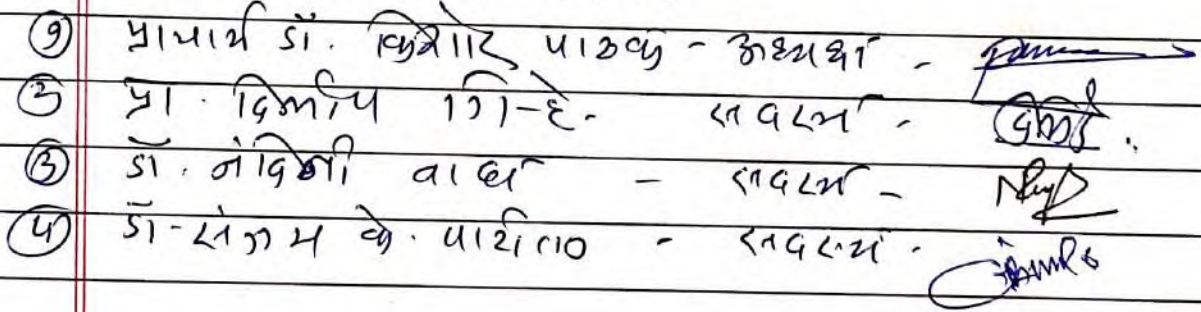 १ प्राचार्य डॉ. किशोर पाठक - अध्यक्ष -
२ प्रा. दिलीप गि-हे. सदस्य -
३ डॉ. नंदिनी वाघ - सदस्य -
४ डॉ - संजय के. - सदस्य -